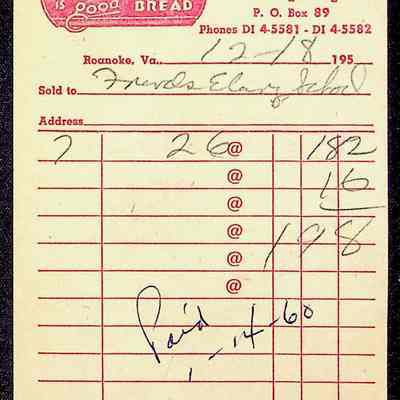 is good BREAD
P. O. Box 89
Phones DI 4-5581 - DI 4-5582
Roanoke, Va., 12-18 195
Sold to Friends Elem School
Address
7 26 @ 182
@ 16
@ 198
@
@
@
Paid
1-14-60